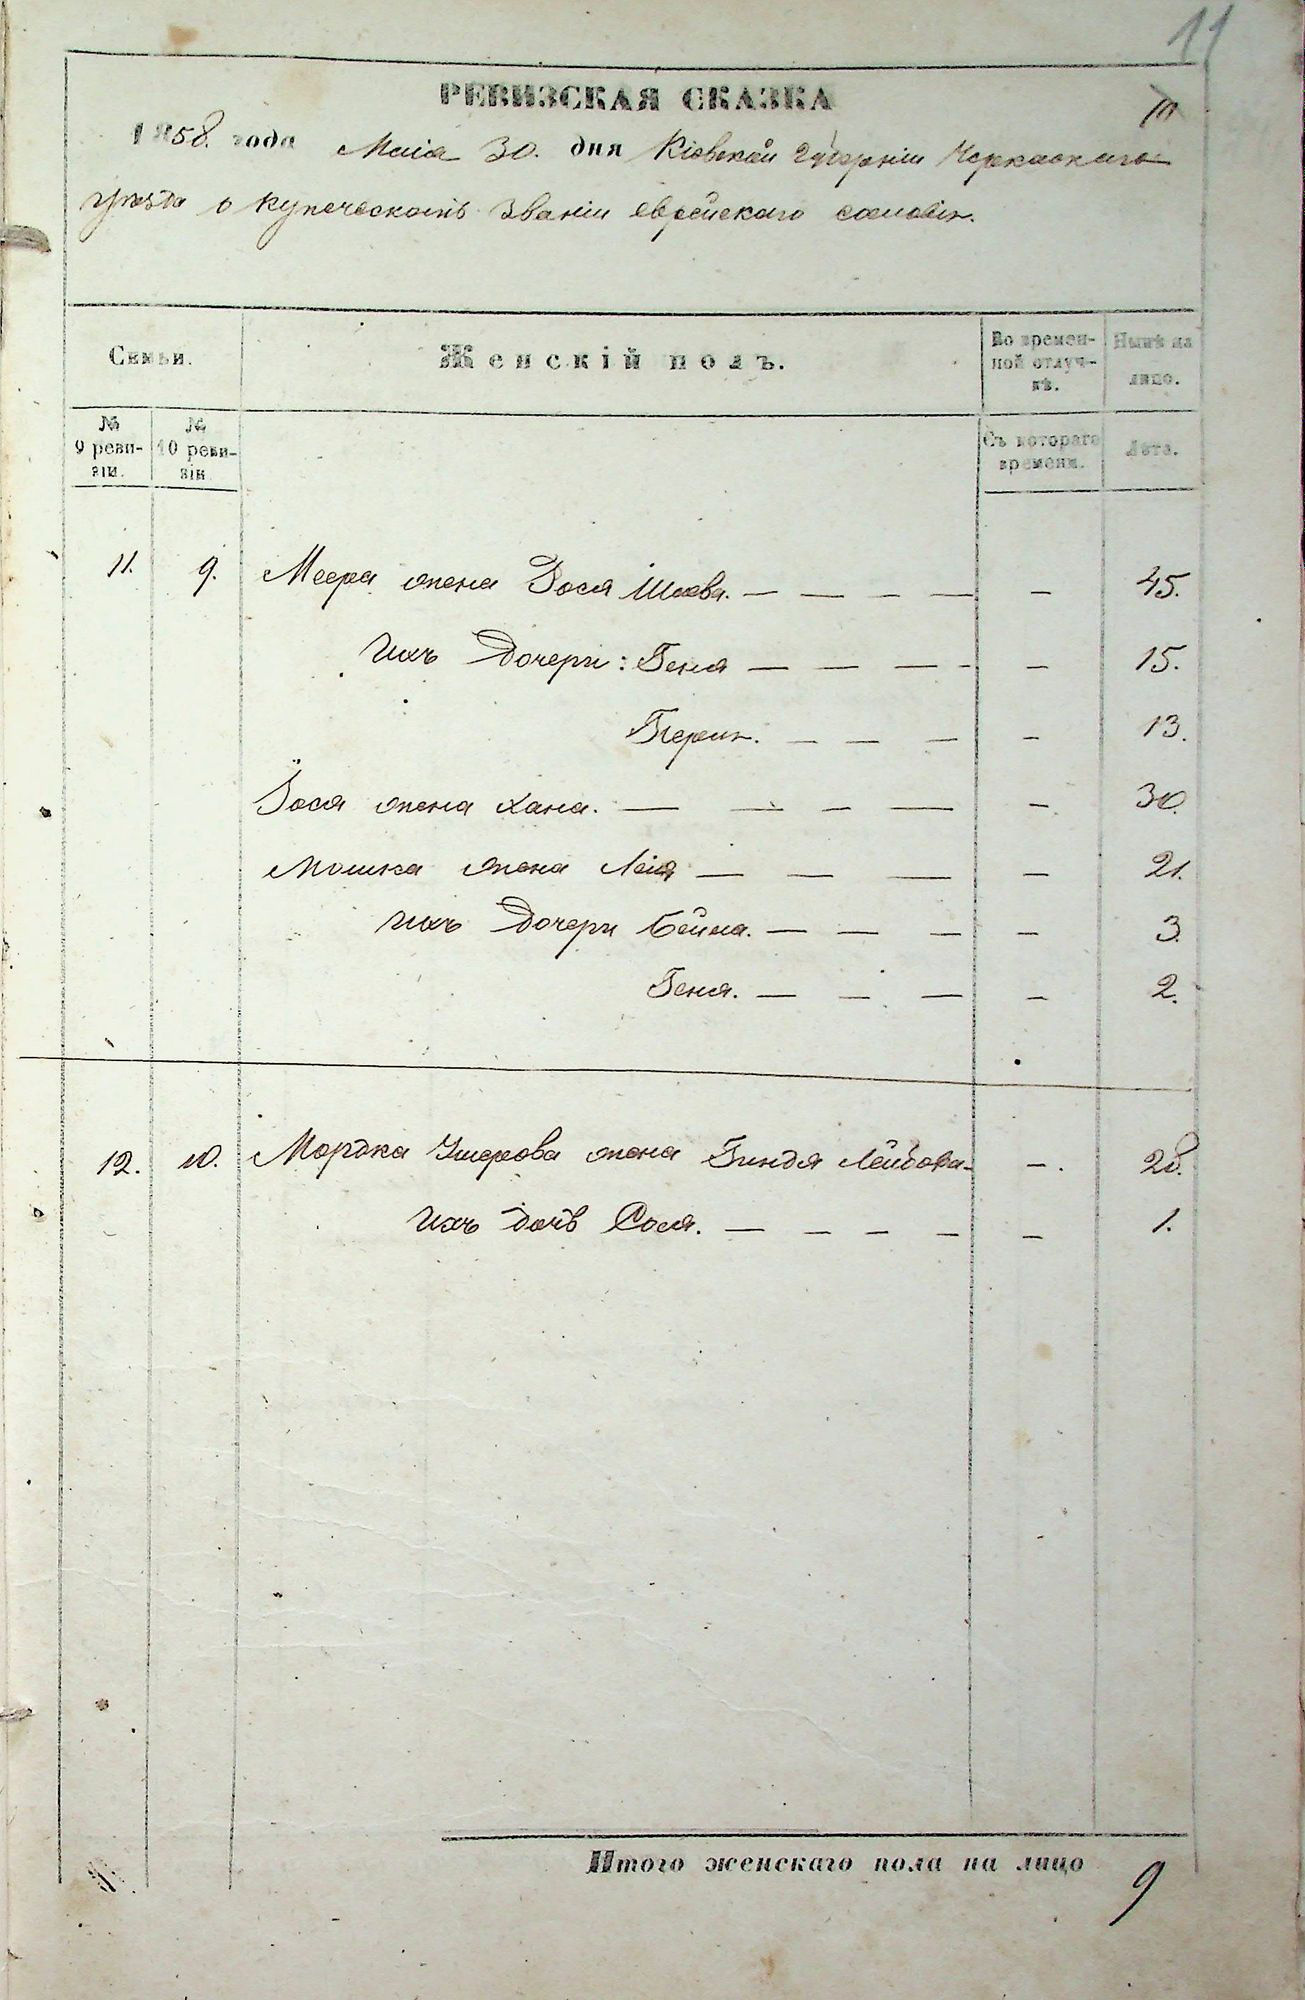 11
10
РЕВИЗСКАЯ СКАЗКА
1858. года Маія 30. дня Кіевской губерніи Черкаскаго
уѣзда о купеческомъ званіи еврейскаго сословія.
Семьи. Женскій полъ. Во времен-ной отлуч-кѣ. Нынѣ на лицо.
№ 9 реви-зіи. № 10 реви-зіи Съ котораго времени. Лѣта.
11. 9. Меера жена Бося Шаева. — — — — — 45.
Ихъ дочери: Геня — — — - — 15.
— — — — 13.
жена Хана. — — — — — 30.
Мошка жена Лея — — — — 21.
Ихъ дочери Бейла. — — — — 3.
Геня. — — — — 2.
12. 10. Мордка Ушерова жена Гиндя Лейбова — . 28.
Ихъ дочь Сося. — — — — — 1.
Итого женскаго пола на лицо 9